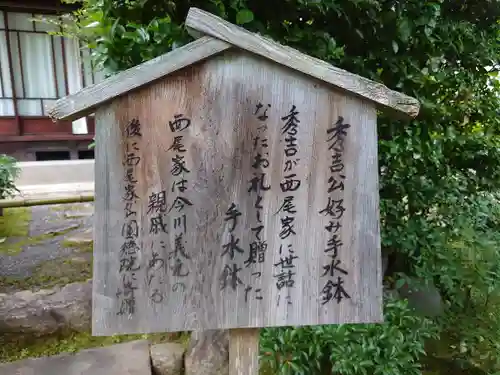 秀吉公好み手水鉢
秀吉が西尾家に世話に
なったお礼として贈った
手水鉢
西尾家は今川義元の
親戚にあたる
後に西尾家より圓徳院に